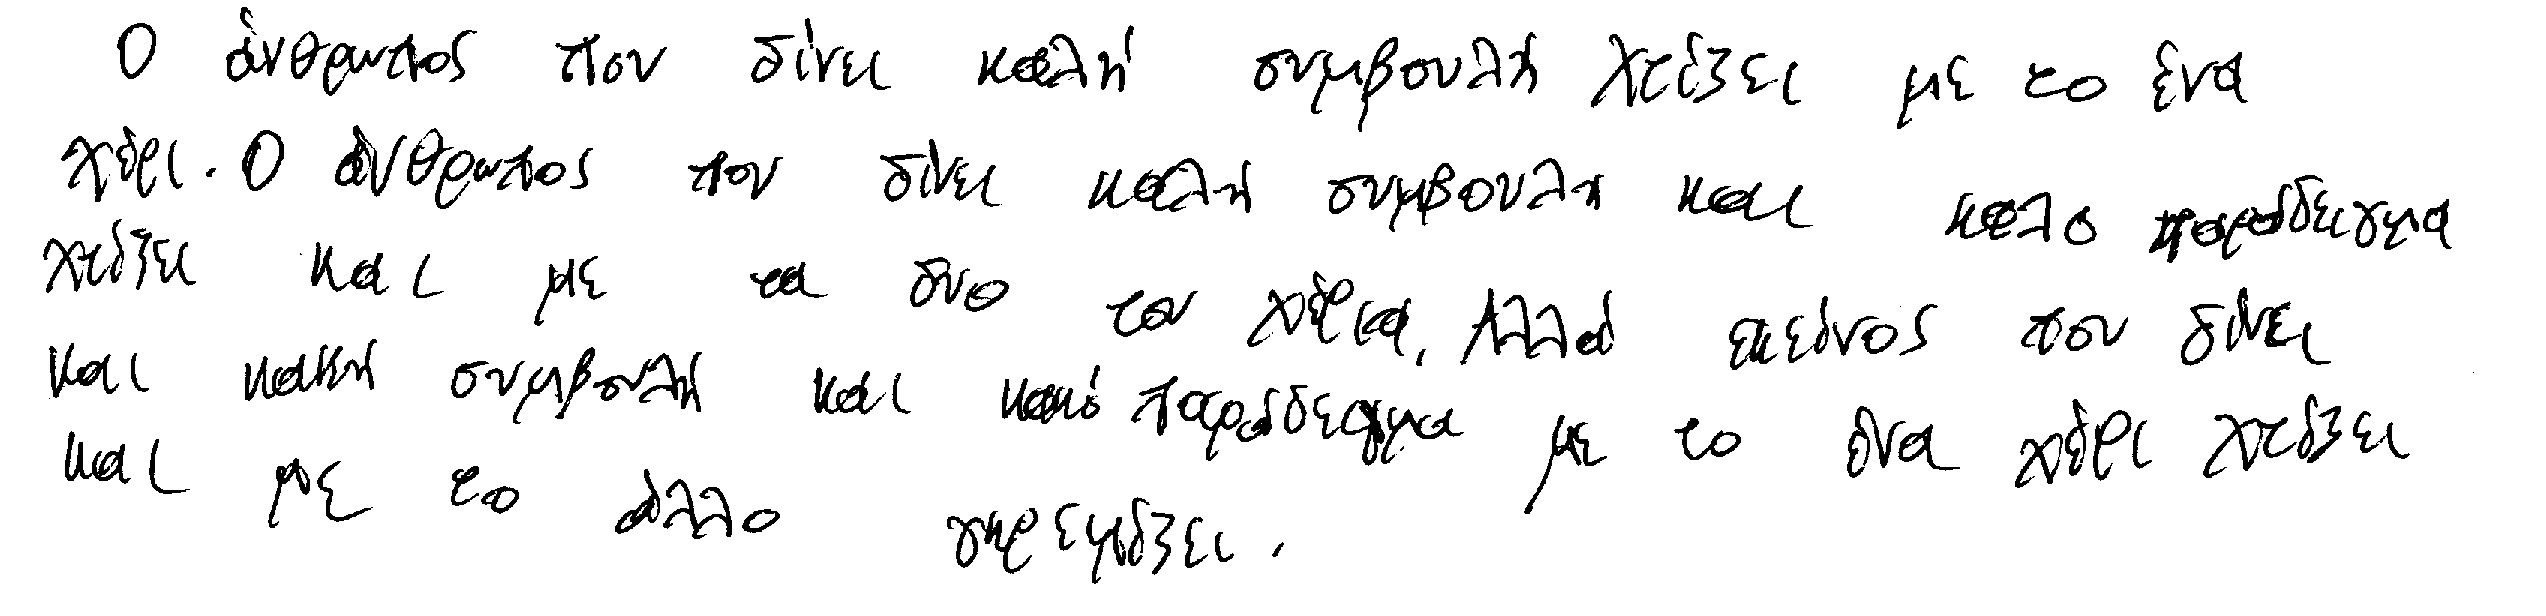 Ο άνθρωπος που δίνει καλή συμβουλή χτίζει με το ένα
χέρι. Ο άνθρωπος που δίνει καλή συμβουλή και καλό παράδειγμα
χτίζει και με τα δυο του χέρια. Αλλά εκείνος που δίνει
και κακή συμβουλή και κακό παράδειγμα με το ένα χέρι χτίζει
και με το άλλο γκρεμίζει.